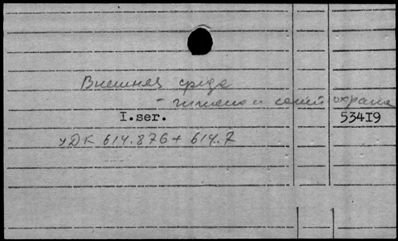 Внешняя среда
- гигиена и санит охрана
I.ser. 534I9
УДК 614.876+614.7